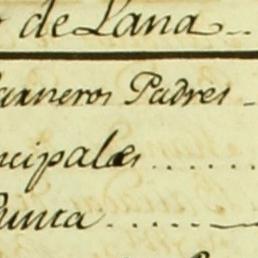 de Lana
Carneros Padres
ncipales
Punta